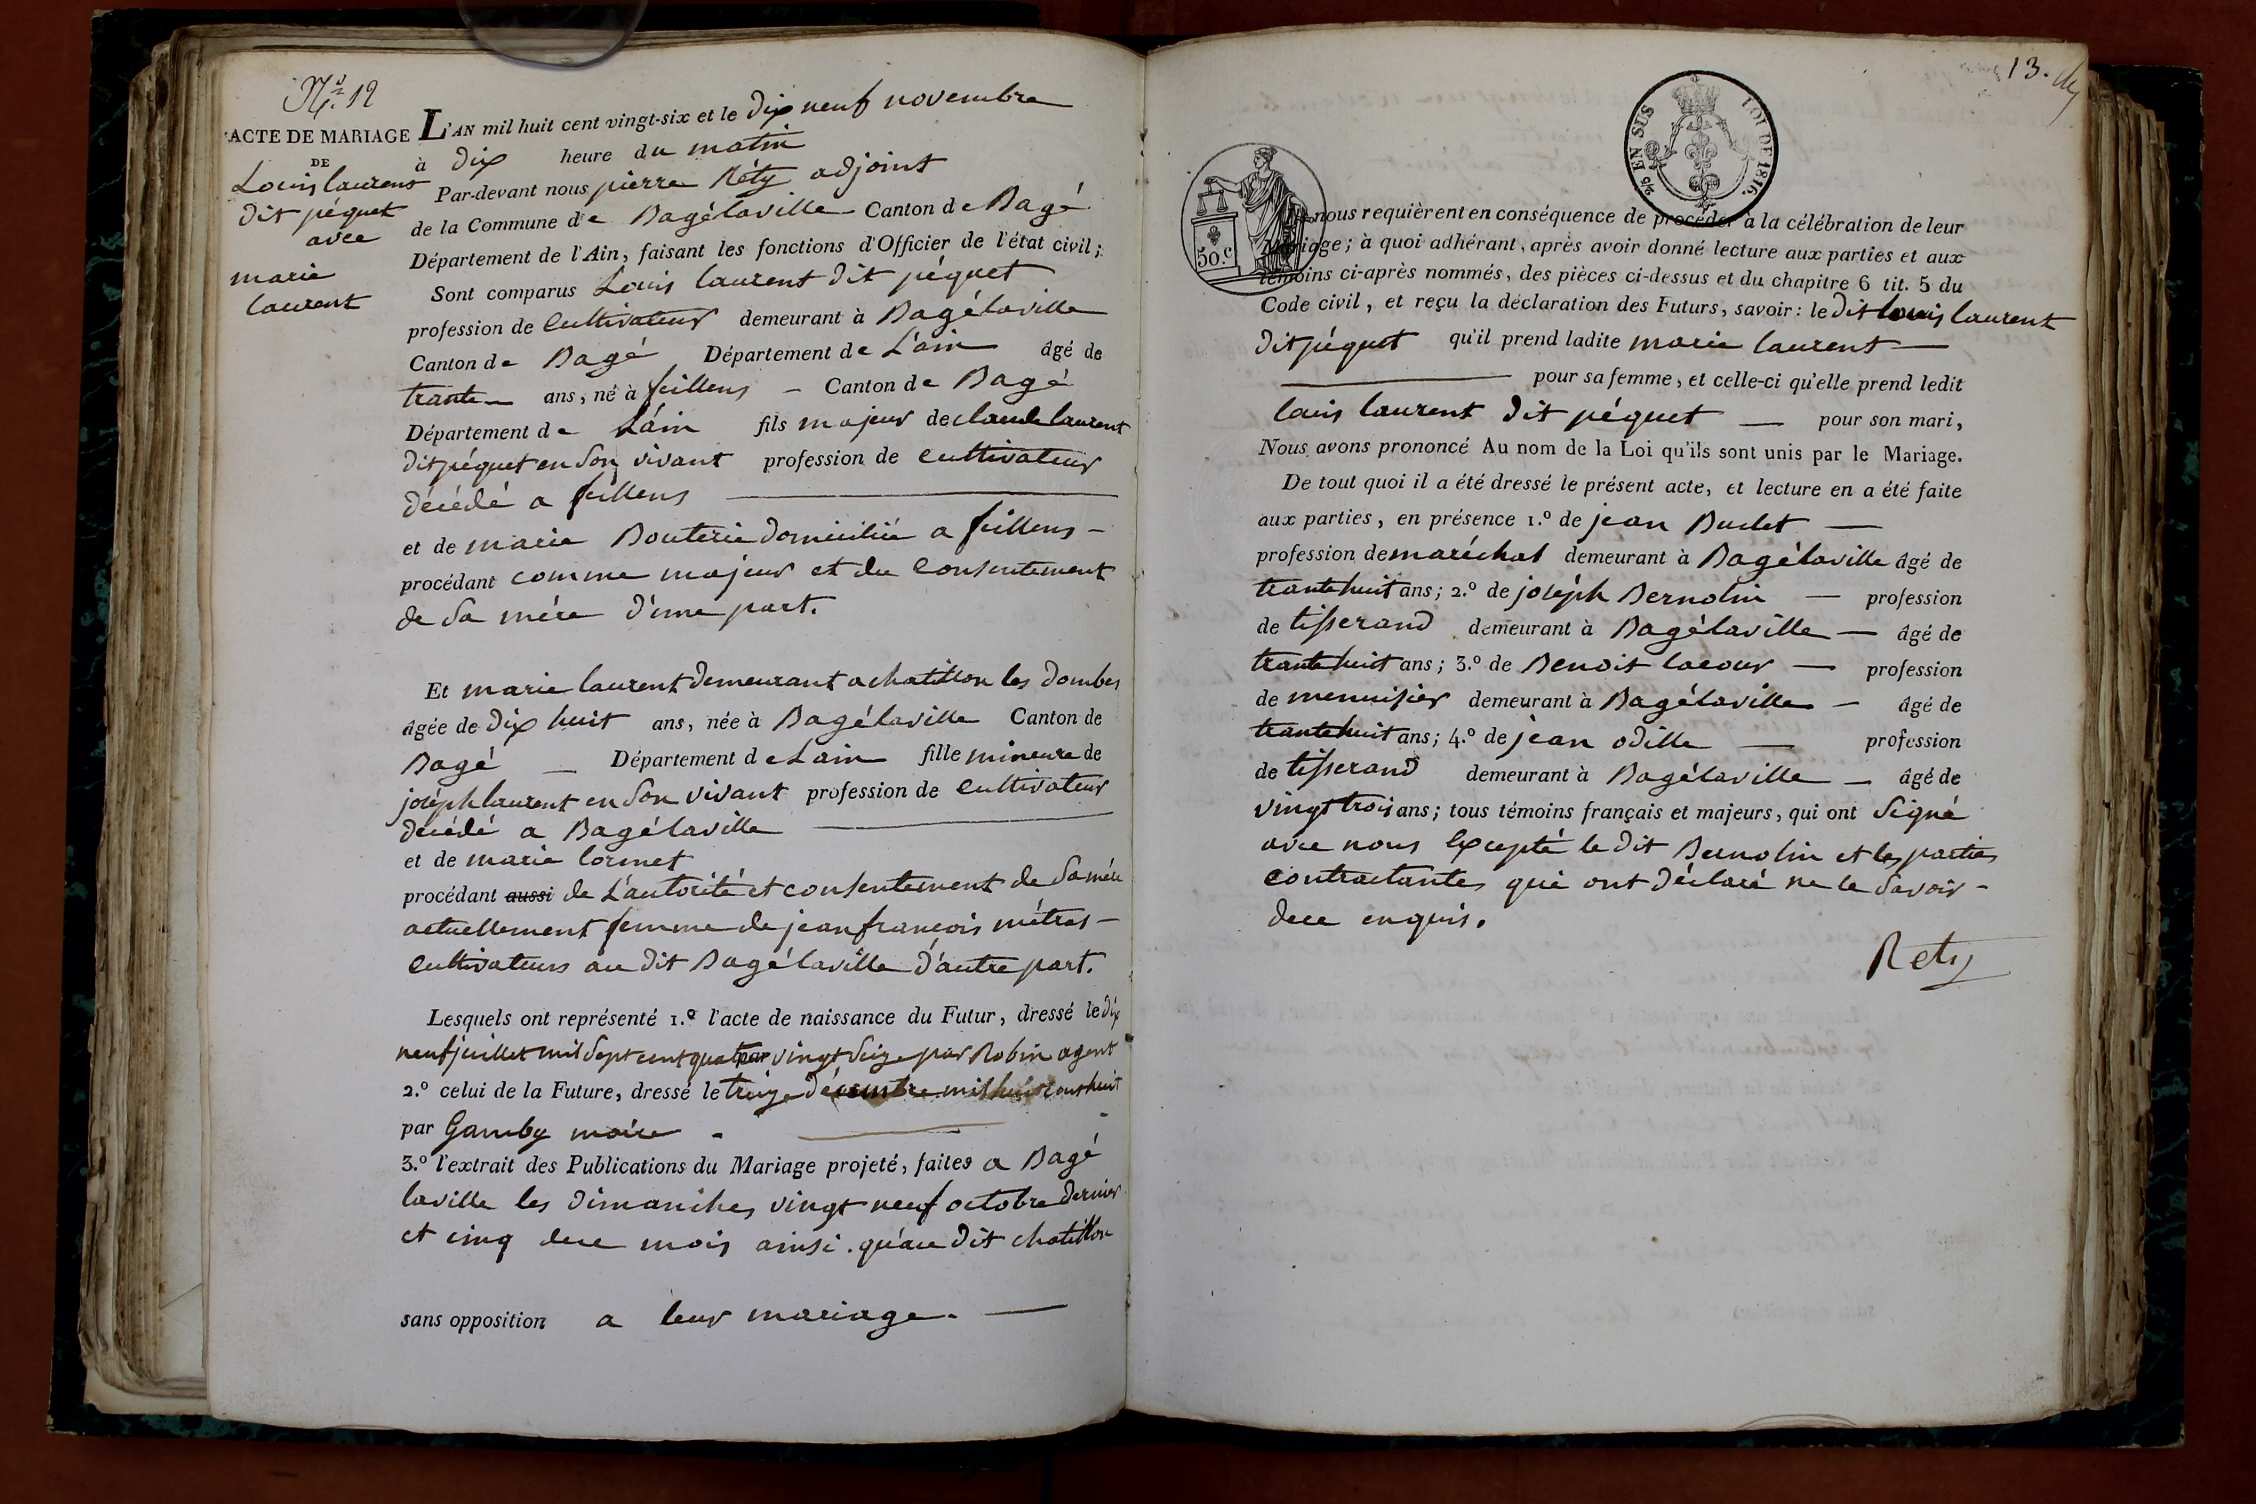 N.° 12
ACTE DE MARIAGE
DE
Louis laurent
dit péquet
avec
marie
laurent
L'AN mil huit cent vingt-six et le dix neuf novembre
à dix heure du matin
Par-devant nous pierre Réty adjoint
de la Commune de Bagélaville Canton de Bagé
Département de l'Ain, faisant les fonctions d'Officier de l'état civil;
Sont comparus Louis laurent dit péquet
profession de Cultivateur demeurant à Bagélaville
Canton de Bagé Département de L'ain âgé de
trante ans, né à feillens - Canton de Bagé
Département de L'ain fils majeur de claude laurent
dit péquet en son vivant profession de cultivateur
décédé a feillens
et de marie Bouterie domiciliée a feillens -
procédant comme majeur et du consentement
de sa mére d'une part.
Et marie laurent demeurant a chatillon les dombes
âgée de dix huit ans, née à Bagélaville Canton de
Bagé Département de Lain fille mineure de
joséph laurent en son vivant profession de cultivateur
décédé a Bagélaville
et de marie lormet
procédant aussi de L'autorité et consentement de sa mére
actuellement femme de jean françois métras -
cultivateurs au dit Bagélaville d'autre part.
Lesquels ont représenté 1.° l'acte de naissance du Futur, dressé le dix
neuf juillet mil sept cent quatre vingt seize par Robin agent
2.° celui de la Future, dressé le treize décembre mil huit cent huit
par Gamby maire -
3.° l'extrait des Publications du Mariage projeté, faites a Bagé
laville les dimanches vingt neuf octobre dernier
et cinq dece mois ainsi qu'au dit chatillon
sans opposition a leur mariage.
13.
2/5 EN SUS LOI DE 1816.
50.c
nous requièrent en conséquence de procéder à la célébration de leur
Mariage; à quoi adhérant, après avoir donné lecture aux parties et aux
témoins ci-après nommés, des pièces ci-dessus et du chapitre 6 tit. 5 du
Code civil, et reçu la déclaration des Futurs, savoir: le dit louis laurent
dit péquet qu'il prend ladite marie laurent
pour sa femme, et celle-ci qu'elle prend ledit
louis laurent dit péquet pour son mari,
Nous avons prononcé Au nom de la Loi qu'ils sont unis par le Mariage.
De tout quoi il a été dressé le présent acte, et lecture en a été faite
aux parties, en présence 1.° de jean Buclet
profession de maréchal demeurant à Bagélaville âgé de
trante huit ans; 2.° de joséph Bernolin profession
de tisserand demeurant à Bagélaville âgé de
trante huit ans; 3.° de Benoit lacour profession
de menuisier demeurant à Bagélaville âgé de
trante huit ans; 4.° de jean odille profession
de tisserand demeurant à Bagélaville âgé de
vingt trois ans; tous témoins français et majeurs, qui ont signé
avec nous Excepté le dit Bernolin et les parties
contractantes qui ont déclaré ne le savoir -
dece enquis.
Rety